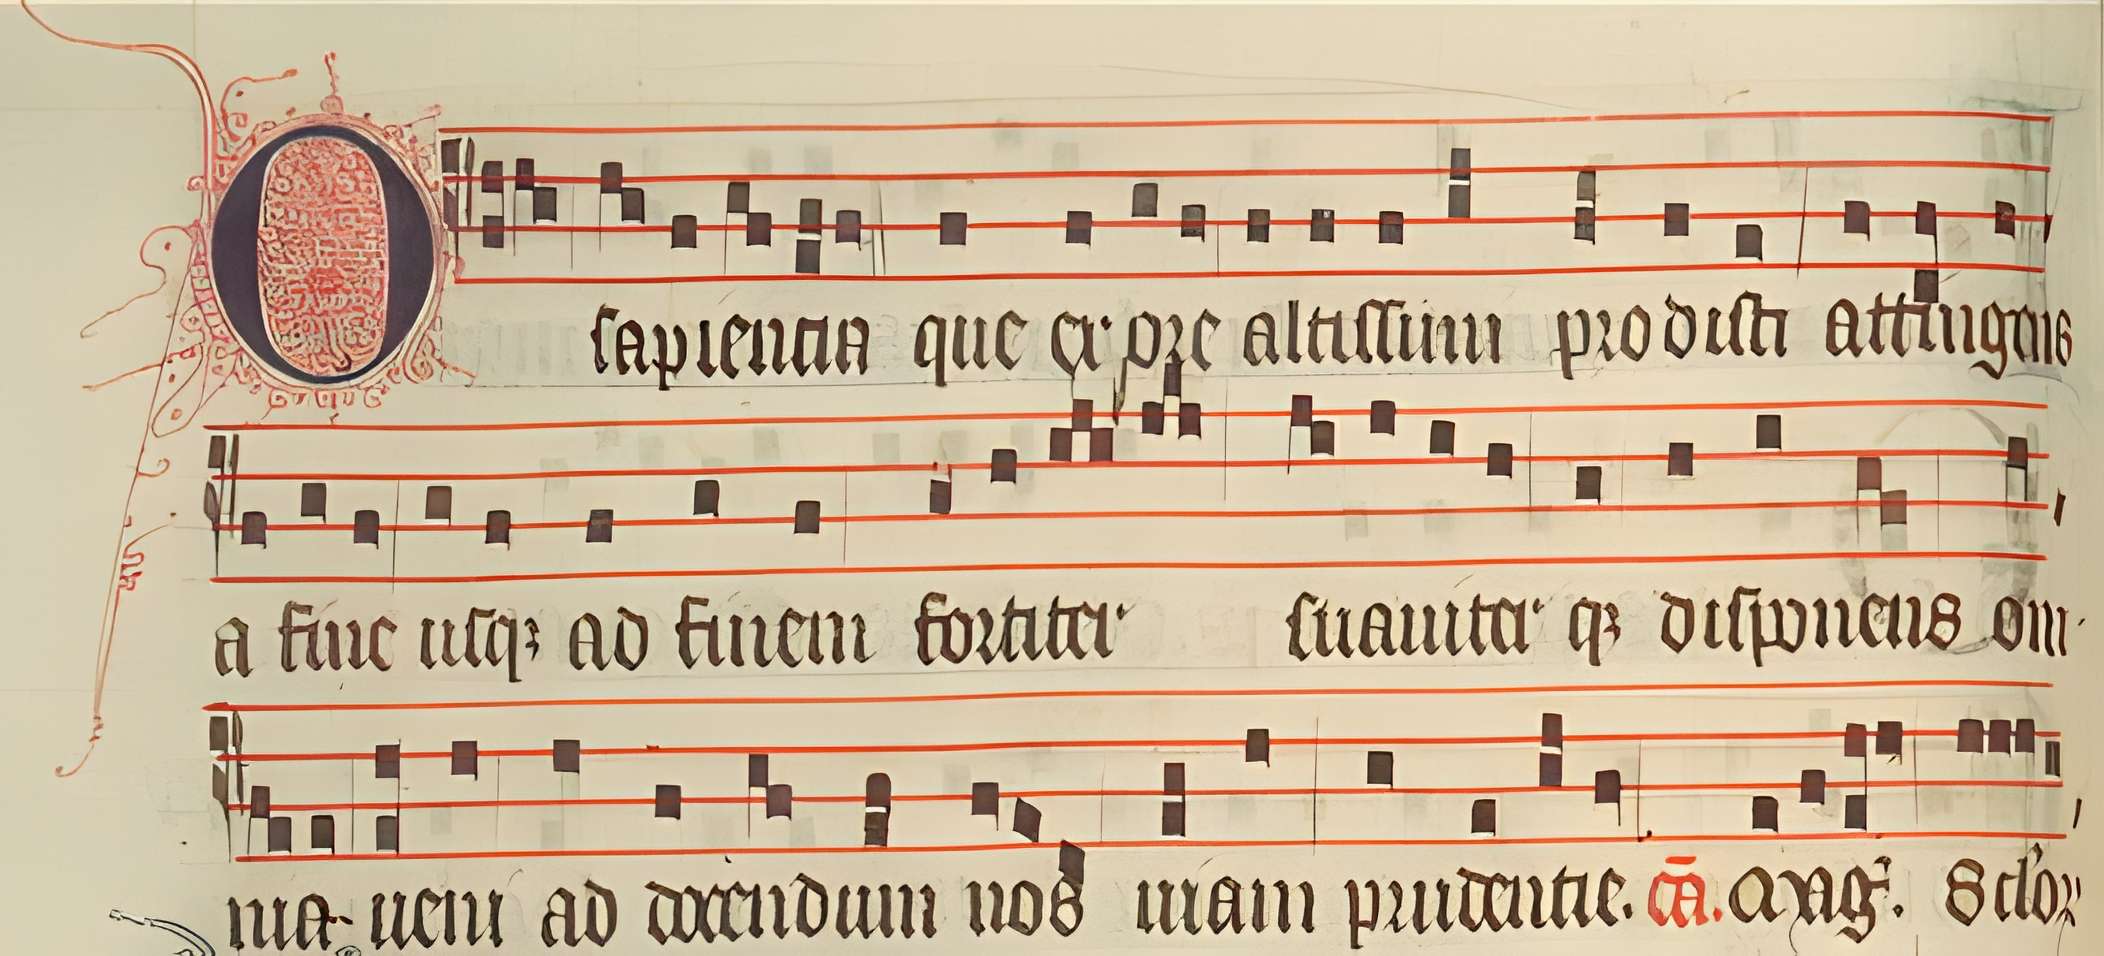 O sapientia que ex ore altissimi prodisti attingens
a fine usqꝫ ad finem fortiter suauiter qꝫ disponens om
nia ueni ad docendum nos uiam prudentie. c̄a.